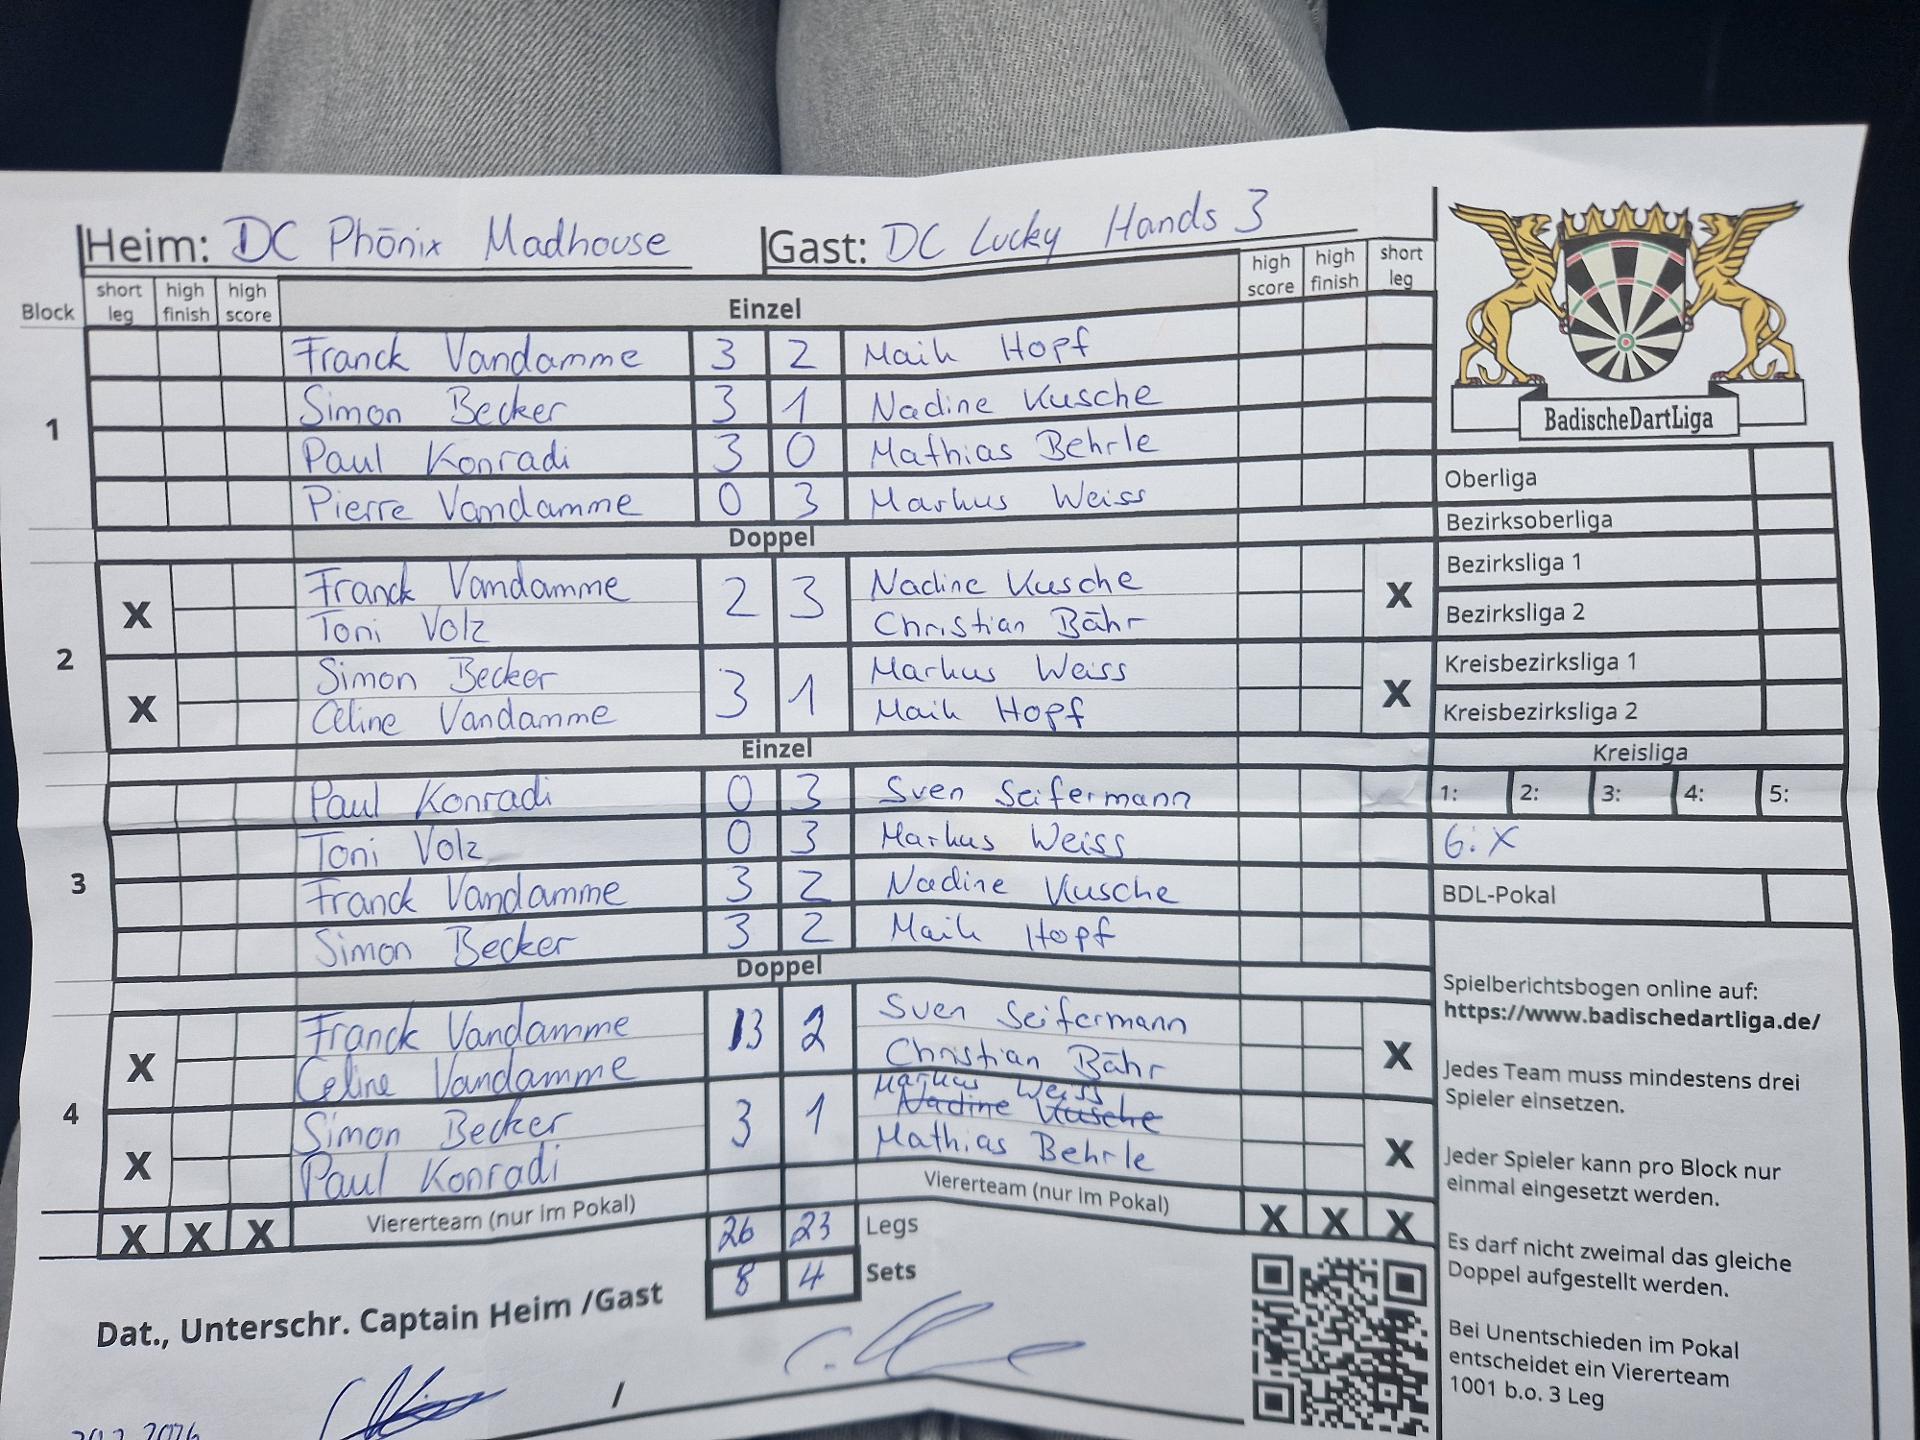 Heim: DC Phönix Madhouse Gast: DC Lucky Hands 3
Block short leg high finish high score Einzel high score high finish short leg
1
Franck Vandamme 3 2 Maik Hopf
Simon Becker 3 1 Nadine Kusche
Paul Konradi 3 0 Mathias Behrle
Pierre Vandamme 0 3 Markus Weiss
Doppel
2
X Franck Vandamme 2 3 Nadine Kusche X
Toni Volz Christian Bähr
X Simon Becker 3 1 Markus Weiss X
Celine Vandamme Maik Hopf
Einzel
3
Paul Konradi 0 3 Sven Seifermann
Toni Volz 0 3 Markus Weiss
Franck Vandamme 3 2 Nadine Kusche
Simon Becker 3 2 Maik Hopf
Doppel
4
X Franck Vandamme 3 2 Sven Seifermann X
Celine Vandamme Christian Bähr
Markus Weiss
X Simon Becker 3 1 Nadine Kusche X
Paul Konradi Mathias Behrle
X X X Viererteam (nur im Pokal) Viererteam (nur im Pokal) X X X
26 23 Legs
8 4 Sets
Dat., Unterschr. Captain Heim /Gast
/
BadischeDartLiga
Oberliga
Bezirksoberliga
Bezirksliga 1
Bezirksliga 2
Kreisbezirksliga 1
Kreisbezirksliga 2
Kreisliga
1: 2: 3: 4: 5:
6: X
BDL-Pokal
Spielberichtsbogen online auf:
https://www.badischedartliga.de/
Jedes Team muss mindestens drei
Spieler einsetzen.
Jeder Spieler kann pro Block nur
einmal eingesetzt werden.
Es darf nicht zweimal das gleiche
Doppel aufgestellt werden.
Bei Unentschieden im Pokal
entscheidet ein Viererteam
1001 b.o. 3 Leg